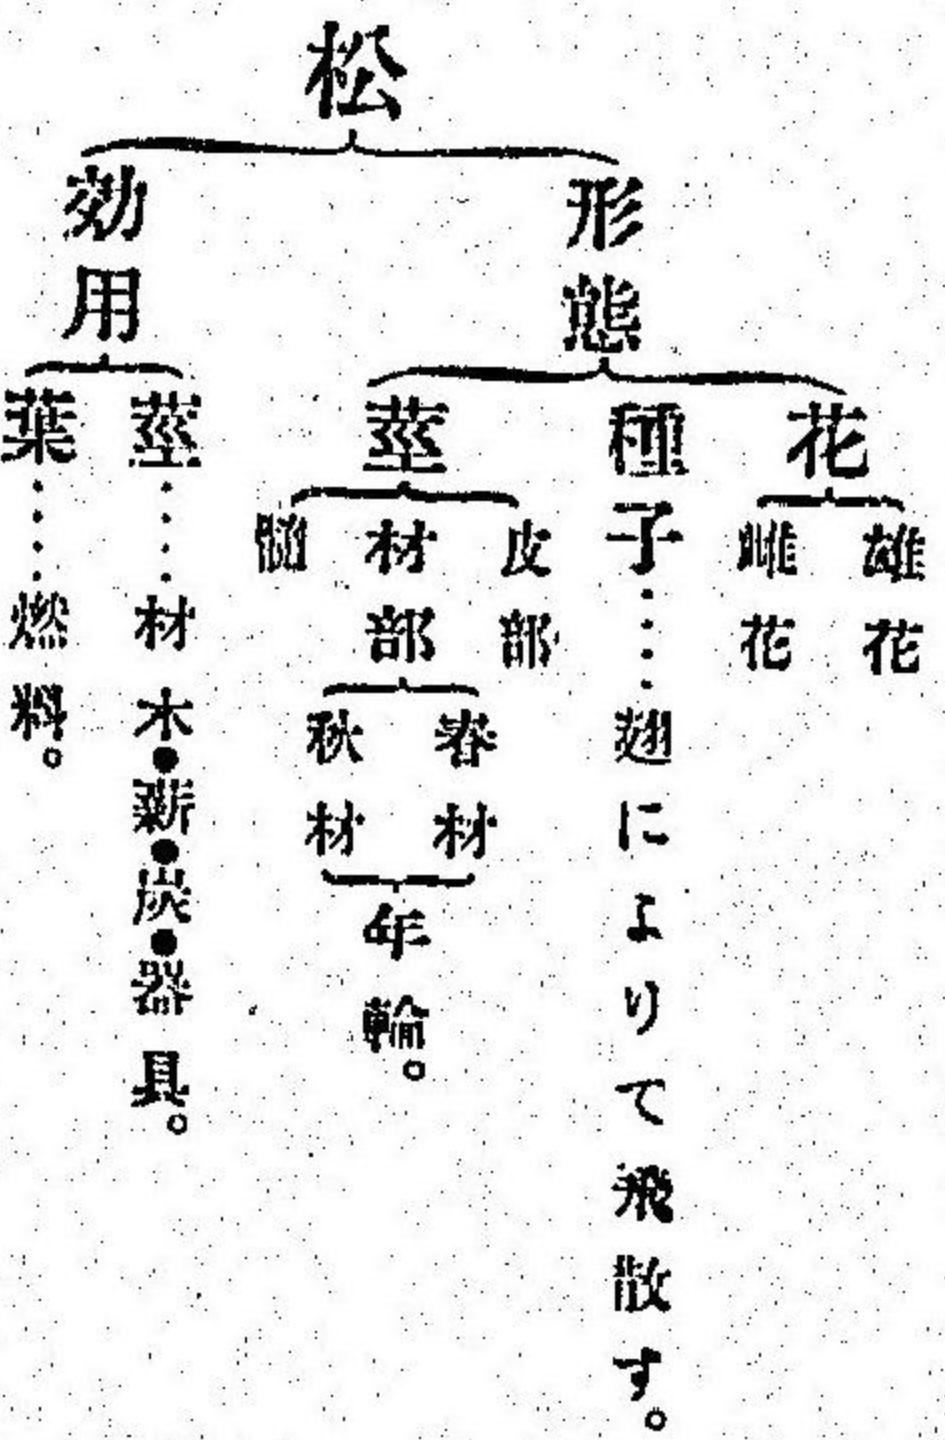 松
形態
花
雄花
雌花
種子……翅によりて飛散す。
莖
皮部
材部
春材
秋材
年輪。
髓
効用
莖……材木●薪●炭●器具。
葉……燃料。